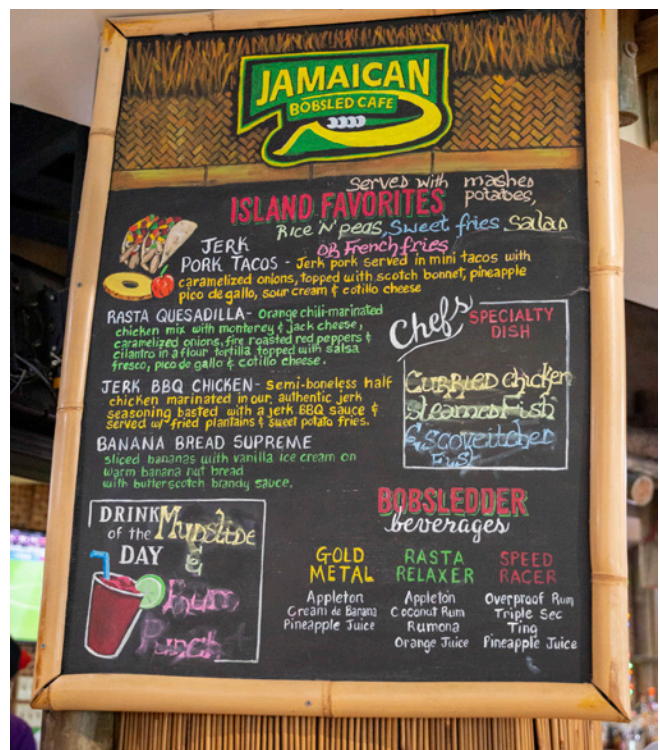 JAMAICAN
BOBSLED CAFE
Served with mashed
potatoes,
ISLAND FAVORITES
Rice N' peas, Sweet fries, Salad
OR French fries
JERK
PORK TACOS - Jerk pork served in mini tacos with
caramelized onions, topped with scotch bonnet, pineapple
pico de gallo, sour cream & cotillo cheese
RASTA QUESADILLA - Orange chili-marinated
chicken mix with monterey & jack cheese,
caramelized onions, fire roasted red peppers &
cilantro in a flour tortilla topped with salsa
fresco, pico de gallo & cotillo cheese.
JERK BBQ CHICKEN - Semi-boneless half
chicken marinated in our authentic jerk
seasoning basted with a jerk BBQ sauce &
served w/ fried plantains & sweet potato fries.
BANANA BREAD SUPREME
sliced bananas with vanilla ice cream on
warm banana nut bread
with butterscotch brandy sauce.
Chefs SPECIALTY
DISH
CURRIED chicken
steamed Fish
Escoveitched
Fish
DRINK
of the
DAY
Mudslide
&
Rum
Punch
BOBSLEDDER
beverages
GOLD
METAL
Appleton
Cream de Banana
Pineapple Juice
RASTA
RELAXER
Appleton
Coconut Rum
Rumona
Orange Juice
SPEED
RACER
Overproof Rum
Triple Sec
Ting
Pineapple Juice